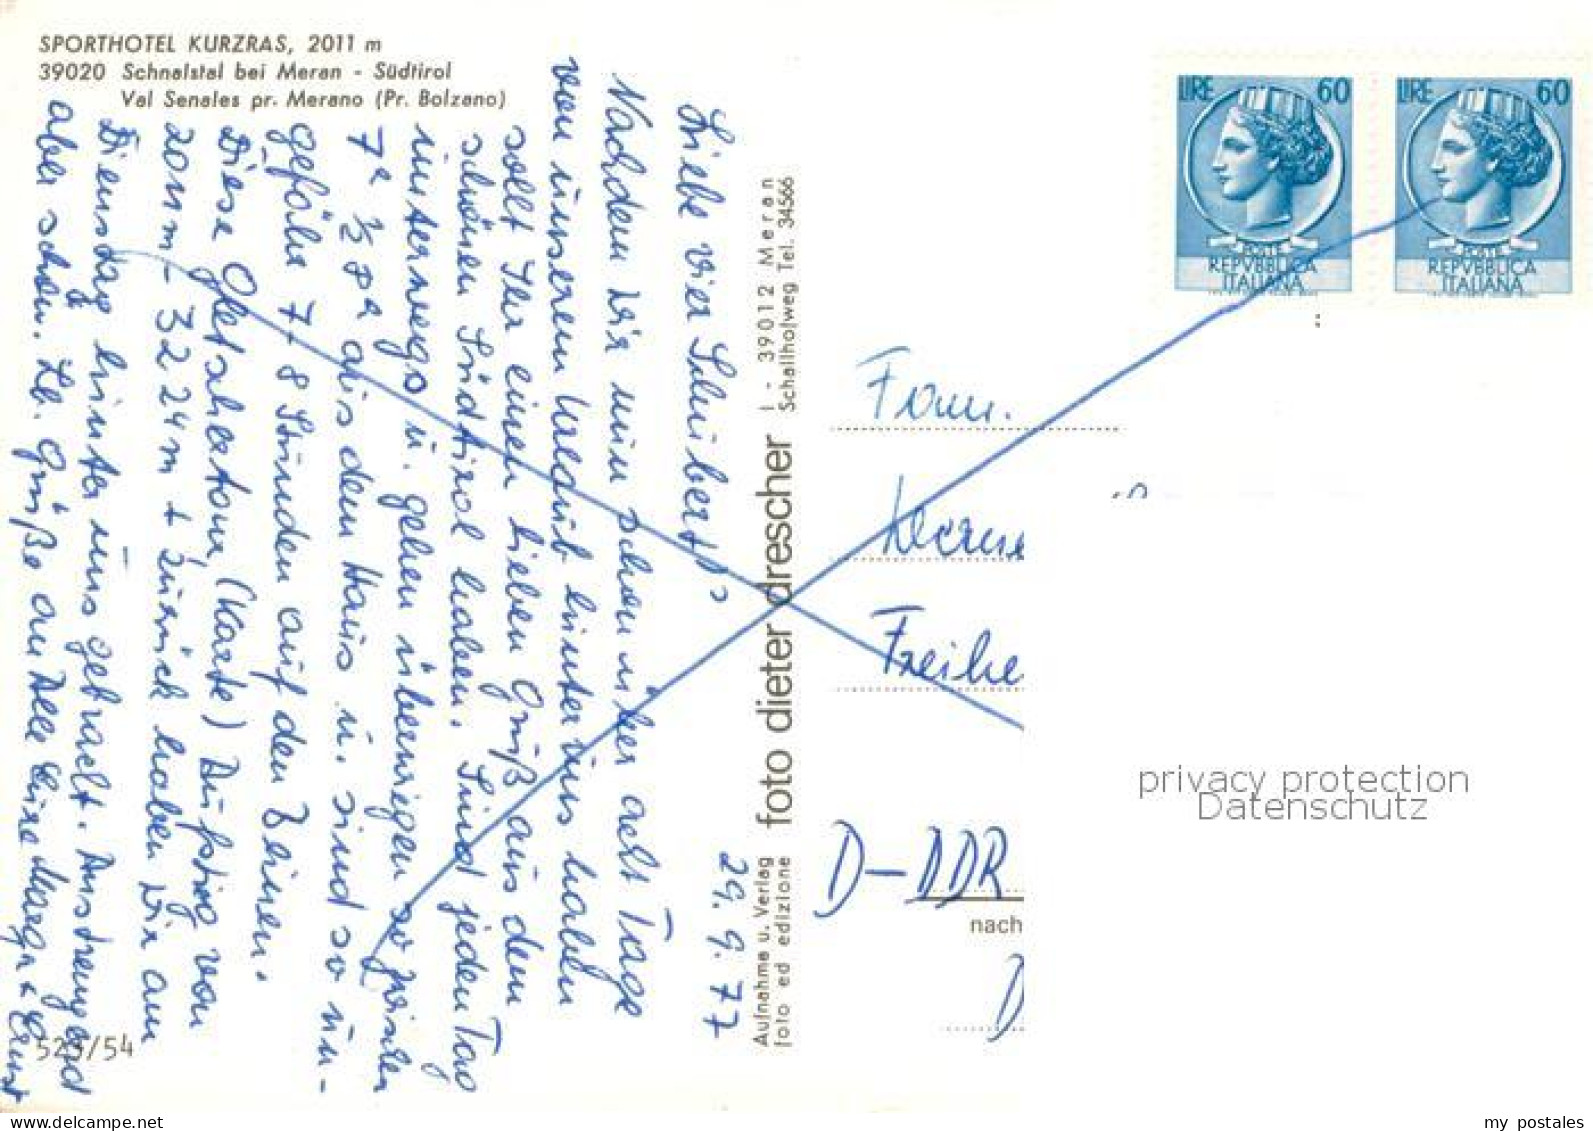 SPORTHOTEL KURZRAS, 2011 m
39020 Schnalstal bei Meran - Südtirol
Val Senales pr. Merano (Pr. Bolzano)
29. 9. 77
Liebe vier Schuberts
Nachdem wir nun schon über acht Tage
von unserem Urlaub hinter uns haben
sollt Ihr einen lieben Gruß aus dem
schönen Südtirol haben. Sind jeden Tag
unterwegs u. gehen überwiegen so zwischen
7ª ½8ª aus dem Haus u. sind so un-
gefähr 7-8 Stunden auf den Beinen.
Diese Gletschertour, (Karte) Aufstieg von
2011m - 3224m + zurück haben wir am
Dienstag hinter uns gebracht. Anstrengend
aber schön. Lb. Grüße an Alle Eure Marga + Ernst
525/54
Aufnahme u. Verlag
foto ed edizione
foto dieter drescher
I - 39012 Meran
Schallhofweg Tel. 34566
LIRE 60
POSTE
REPVBBLICA
ITALIANA
LIRE 60
POSTE
REPVBBLICA
ITALIANA
Fam.
Werne
Freihe
D-DDR
nach
D
privacy protection
Datenschutz
delcampe.net
my postales